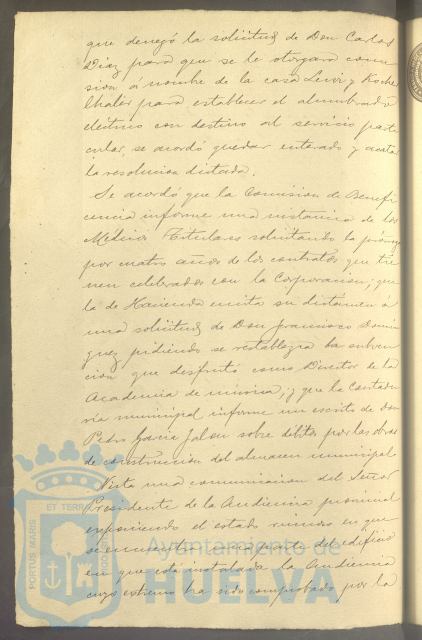 que denegó la solicitud de Don Carlos
Diaz para que se le otorgara conce
sion á nombre de la casa Levi y Koche
thaler para establecer el alumbrado
eléctrico con destino al servicio parti
cular, se acordó quedar enterado y acatar
la resolucion dictada.
Se acordó que la Comision de Benefi
cencia informe una instancia de los
Médicos Titulares solicitando la prórroga
por cuatro años de los contratos que tie
nen celebrados con la Corporacion; que
la de Hacienda emita su dictamen á
una solicitud de Don Francisco Domin
guez pidiendo se restablezca la subven
cion que disfrutó como Director de la
Academia de música, y que la Contadu
ría municipal informe un escrito de Don
Pedro Garcia Jalon sobre débitos por las obras
de construccion del almacen municipal
Vista una comunicacion del Señor
Presidente de la Audiencia provincial
exponiendo el estado ruinoso en que
se encuentra una parte del edificio
en que está instalada la Audiencia
cuyo extremo ha sido comprobado por la
PORTUS MARIS
ET TERRAE
CUSTODIA
Ayuntamiento de
HUELVA